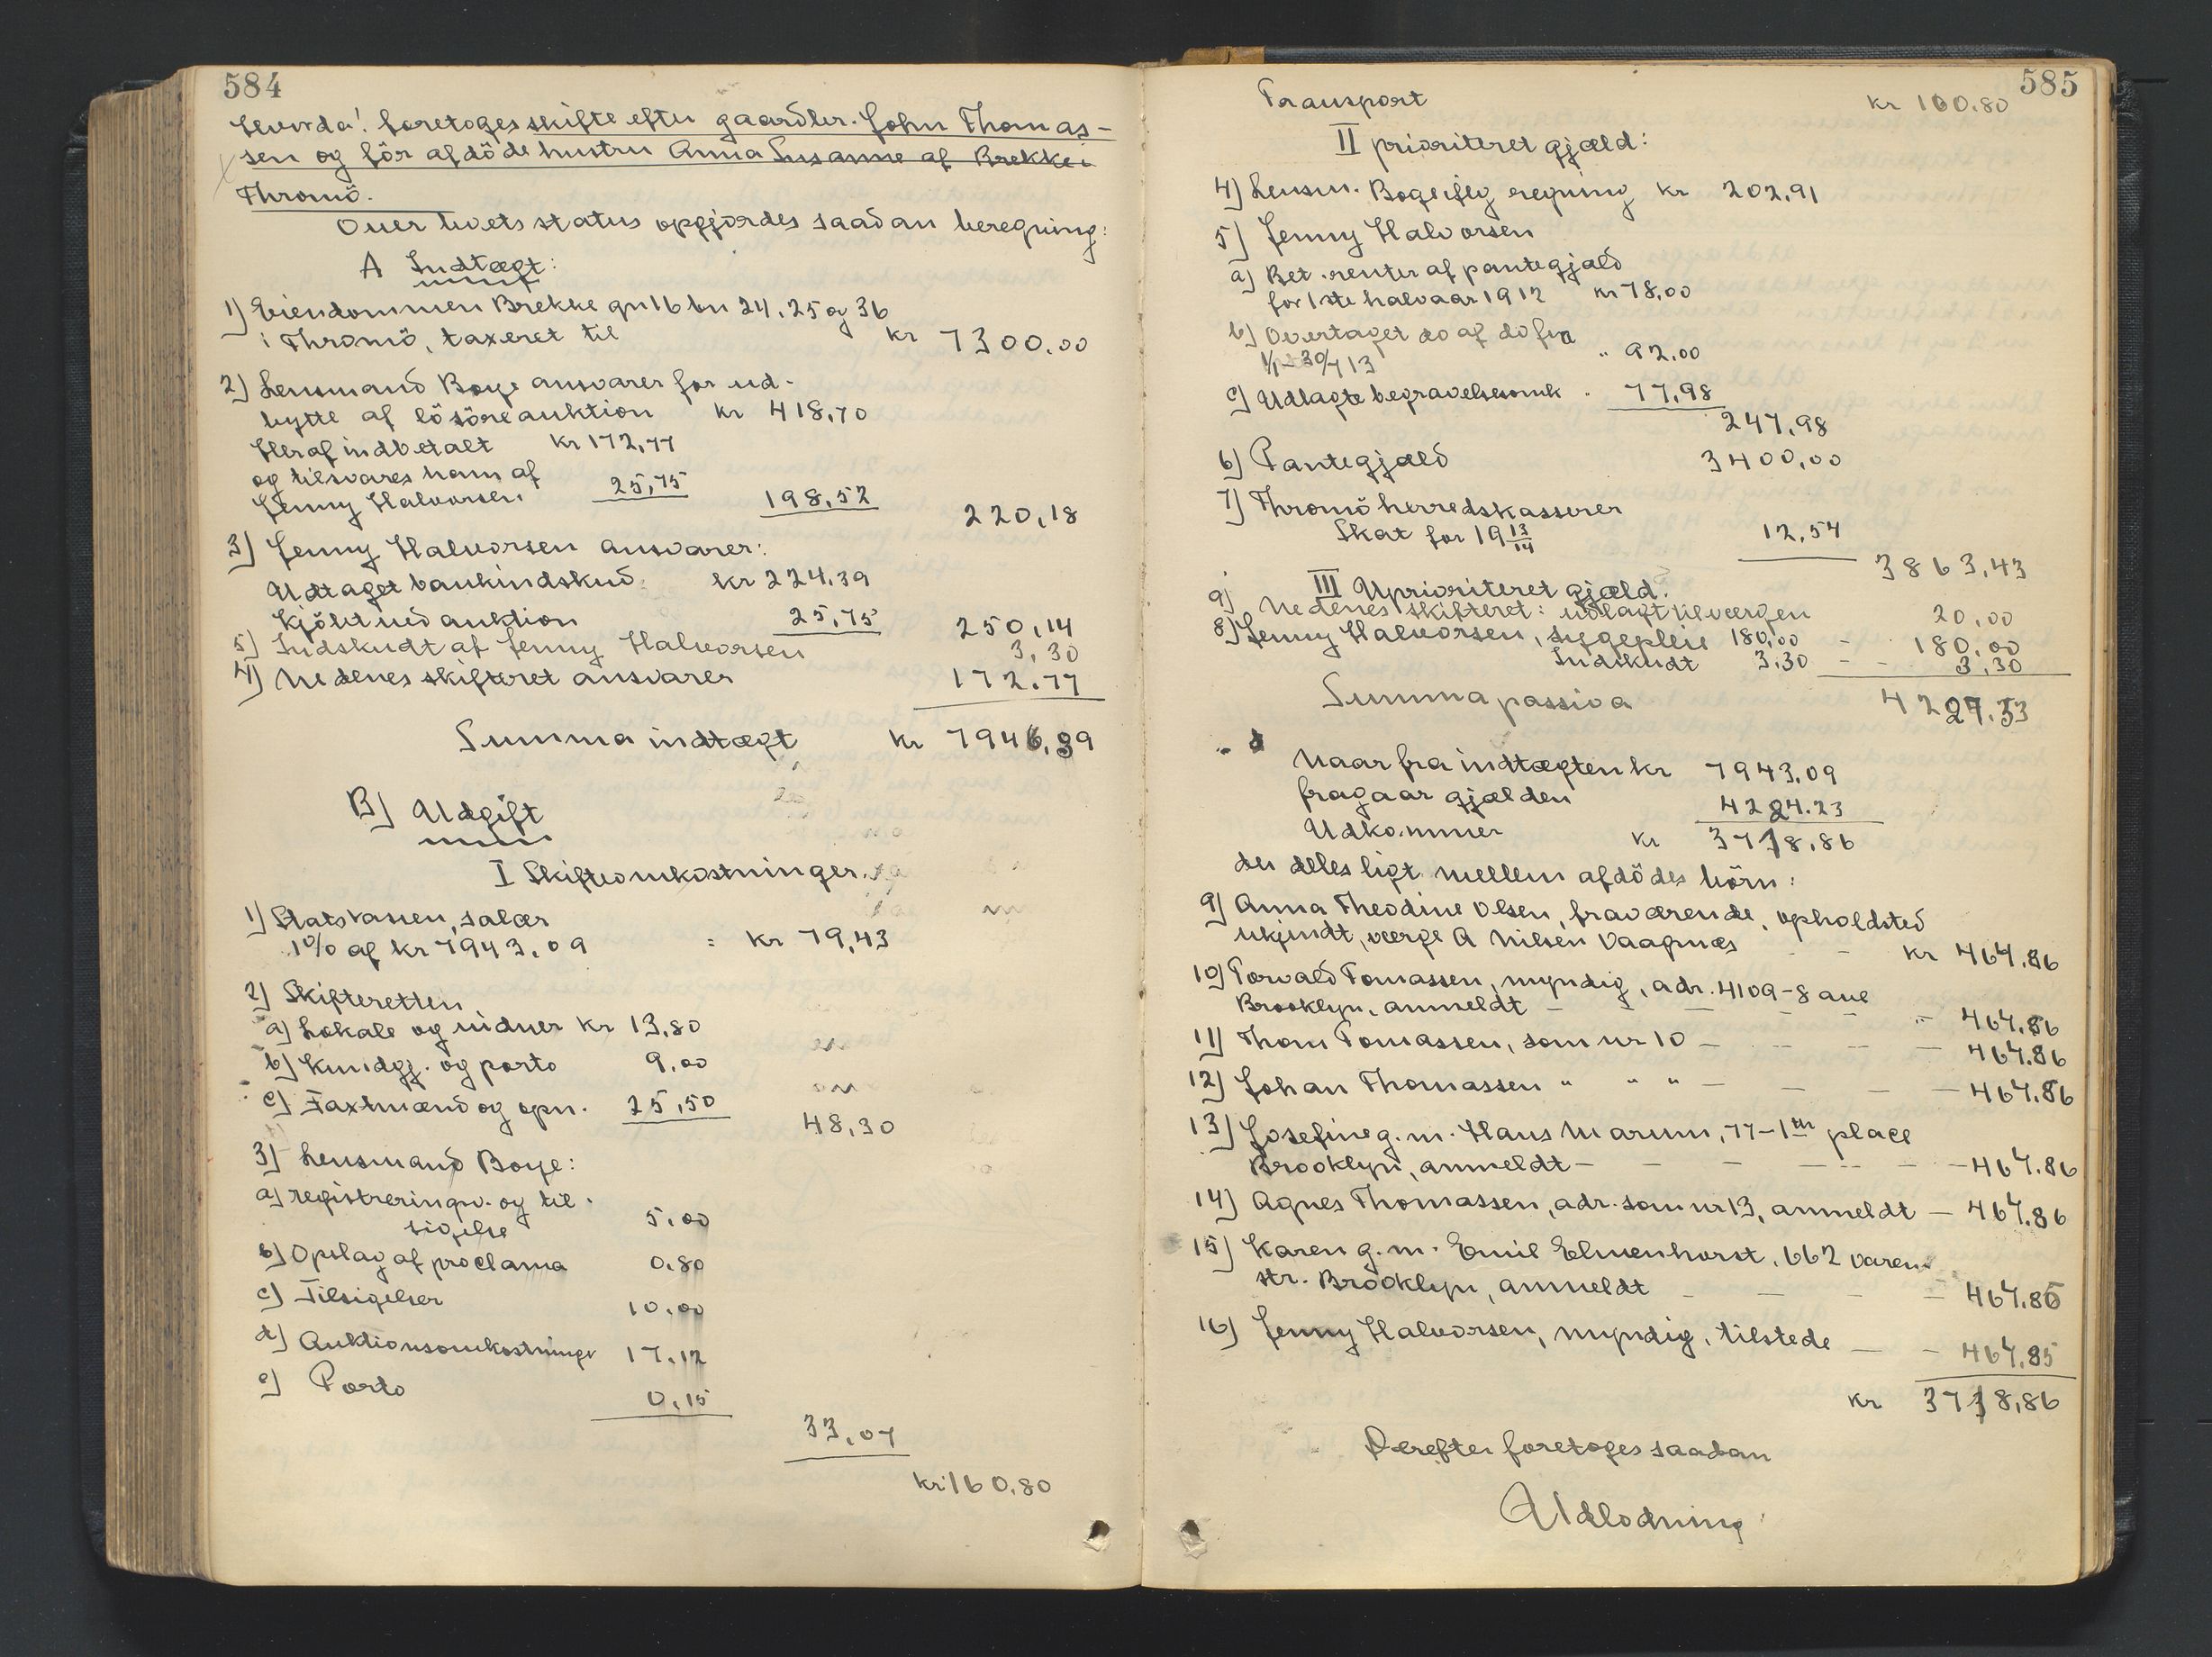 584
Hvorda: foretoges skifte efter gaardbr. John Thomas-
sen og før afdöde hustru Anna Susanne af Brekke i
Thromö.
Over boets status opgjordes saadan beregning:
A Indtægt:
1) Eiendommen Brekke gn 16 bn 24, 25 og 36
i Thromö, taxeret til kr 7300.00
2) Lensmand Boye ansvarer for ud-
bytte af lösöreauktion kr 418,70
Heraf indbetalt kr 172,77
og tilsvares ham af
Jenny Halvorsen 25,75 198,52 220,18
3) Jenny Halvorsen ansvarer:
Udtaget bankindskud kr 224.39
Kjöbt ved auktion 25,75 250,14
5) Indskudt af Jenny Halvorsen 3,30
4) Nedenes skifteret ansvarer 172.77
Summa indtægt kr 7946,39
B) Udgift
I Skifteomkostninger.
1) Statskassen, salær
1% af kr 7943.09 = kr 79,43
2) Skifteretten
a) Lokale og vidner kr 13,80
b) Kundgj. og porto 9,00
c) Taxtmænd og opn. 25,50
48,30
3) Lensmand Boye:
a) registreringsv. og til-
sigelse 5.00
b) Opslag af proclama 0.80
c) Tilsigelser 10.00
d) Auktionsomkostninger 17.12
e) Porto 0,15
33,07
kr 160.80
585
Transport kr 160.80
II prioriteret gjæld:
4) Lensm. Boye ifölg regning kr 202,91
5) Jenny Halvorsen
a) Bet. renter af pantegjæld
for 1ste halvaar 1912 kr 78,00
b) Overtaget do af do fra
1/1-30/7 13 " 92.00
c) Udlagte begravelsesomk " 77,98
247,98
6) Pantegjæld 3400,00
7) Thromö herredskasserer
Skat for 19 13/14 12,54
3863,43
III Uprioriteret gjæld:
9) Nedenes skifteret: udlagt til værgen 20,00
8) Jenny Halvorsen, sygepleie 180,00 - 180.00
Indskudt 3.30 - - 3,30
Summa passiva 4227.53
Naar fra indtægten kr 7943.09
fragaar gjælden 4224.23
Udkommer kr 3718,86
der deles ligt mellem afdödes börn:
9) Anna Theodine Olsen, fraværende, opholdsted
ukjendt, værge A Nilsen Vaagnæs - - kr 464.86
10) Torvald Tomassen, myndig, adr. 4109-8 ave
Brooklyn, anmeldt - - - - - " 464.86
11) Thom Tomassen, som nr 10 - - - - - 464.86
12) Johan Thomassen " " " - - - - 464.86
13) Josefine g. m. Hans Marum, 77-1th place
Brooklyn, anmeldt - - - - - - 464.86
14) Agnes Thomassen, adr. som nr 13, anmeldt - 464.86
15) Karen g. m. Emil Elmenhorst, 662 Varen
str. Brooklyn, anmeldt - - - - 464.85
16) Jenny Halvorsen, myndig, tilstede - - 464.85
kr 3718,86
Derefter foretoges saadan
Udlodning